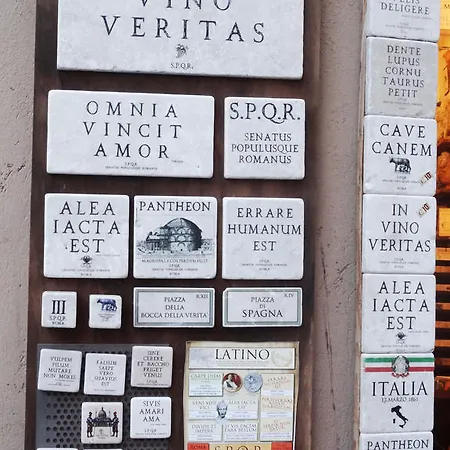 VINO
VERITAS
S.P.Q.R.
OMNIA
VINCIT
AMOR
S.P.Q.R.
SENATUS
POPULUSQUE
ROMANUS
ALEA
IACTA
EST
PANTHEON
ERRARE
HUMANUM
EST
S.P.Q.R.
ROMA
III
S.P.Q.R.
ROMA
PIAZZA
DELLA
BOCCA DELLA VERITA
R.XII
PIAZZA
DI
SPAGNA
R.IV
VULPEM
PILUM
MUTARE
NON MORES
FALSUM
SAEPE
VERO
SUAVIUS
EST
SINE
CERERE
ET BACCHO
FRIGET
VENUS
SIVIS
AMARI
AMA
LATINO
CARPE DIEM
ERRARE
ALEA IACTA
EST
DIVIDE ET
IMPERA
ROMA
S.P.Q.R.
DELIGERE
DENTE
LUPUS
CORNU
TAURUS
PETIT
CAVE
CANEM
ROMA
IN
VINO
VERITAS
ALEA
IACTA
EST
ITALIA
17 MARZO 1861
PANTHEON